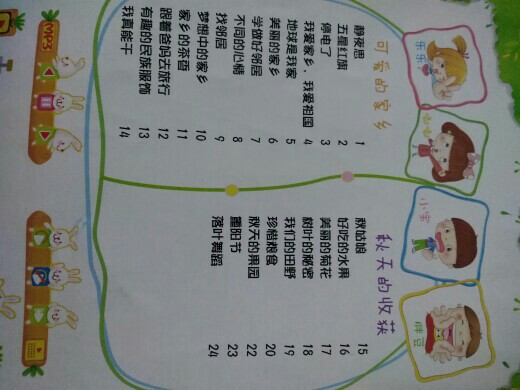 MP3
乐乐
小宇
胖豆
可爱的家乡
静夜思 1
五星红旗 2
停电了 3
我爱家乡，我爱祖国 4
地球是我家 5
美丽的家乡 6
学做好邻居 7
不同的心 8
找邻居 9
梦想中的家乡 10
家乡的茶香 11
跟着爸妈去旅行 12
有趣的民族服饰 13
我真能干 14
秋天的收获
秋姑娘 15
好吃的水果 16
美丽的菊花 17
树叶的秘密 18
我们的田野 19
珍惜粮食 20
秋天的果园 22
重阳节 23
落叶舞蹈 24